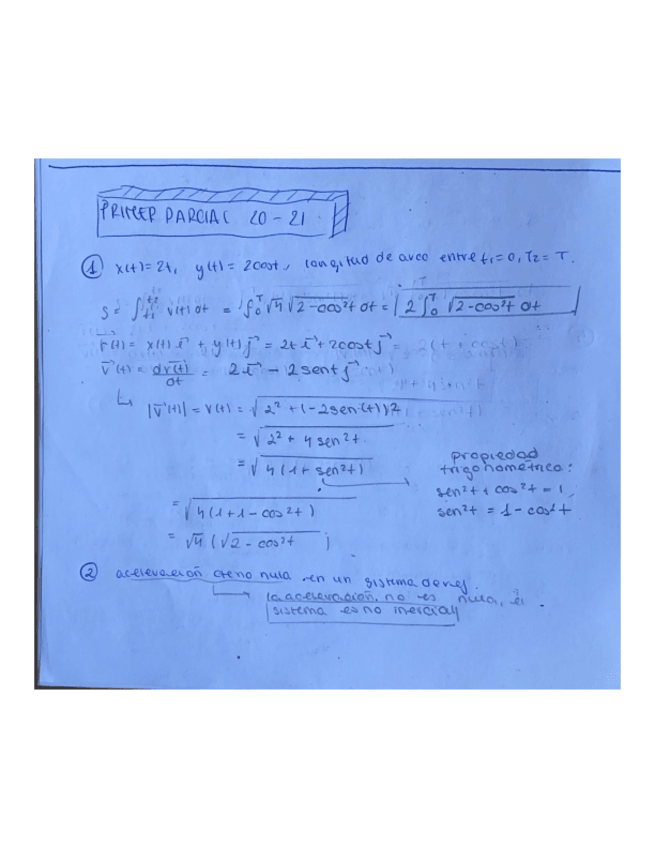 PRIMER PARCIAL 20-21
① x(t)=2t, y(t)=2cost, longitud de arco entre t₁=0, T₂=T.
S=∫ₜ₁ᵗ² v(t) dt = ∫₀ᵀ √4 √2-cos²t dt = 2∫₀ᵀ √2-cos²t dt
r⃗(t)= x(t)i⃗ + y(t)j⃗ = 2t i⃗ + 2cost j⃗
v⃗(t)= dr⃗(t)/dt = 2i⃗ - 2sent j⃗
↳ |v⃗(t)| = v(t) = √2² + (-2sen(t))²
= √2² + 4sen²t
= √4(1+sen²t)
propiedad
trigonométrica:
sen²t + cos²t = 1
sen²t = 1-cos²t
= √4(1+1-cos²t)
= √4 (√2-cos²t)
② aceleración cte no nula en un sistema de ref.
↳ la aceleración no es nula, el
sistema es no inercial